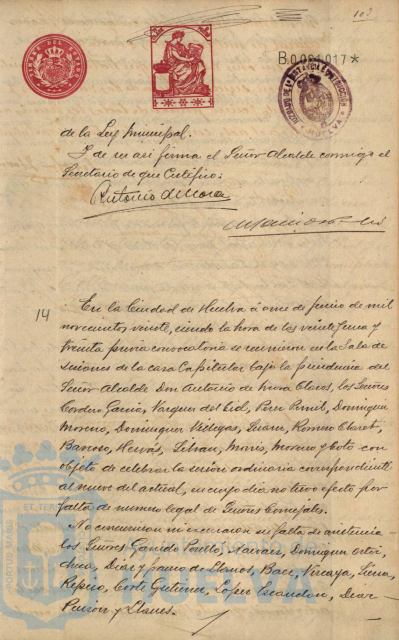 103
B0.061.017*
JUZGADO DE 1ª INSTANCIA E INSTRUCCION
HUELVA
de la Ley Municipal.
I de ser asi firma el Señor Alcalde conmigo el
Secretario de que Certifico:
Antonio de Mora
14
En la Ciudad de Huelva á once de Junio de mil
novecientos veinte, siendo la hora de las veinte una y
treinta previa convocatoria se reunieron en la Sala de
sesiones de la casa Capitular bajo la presidencia del
Señor Alcalde Don Antonio de Mora Claros, los Señores
Cordero Garcia, Vazquez del Cid, Perez Pomil, Dominguez
Moreno, Dominguez Villegas, Suarez, Romero Claret,
Barroso, Hervás, Moris, Moreno y Coto con
objeto de celebrar la sesión ordinaria correspondiente
al nueve del actual, en cuyo dia no tuvo efecto por
falta de número legal de Señores Concejales.
No concurrieron ni excusaron su falta de asistencia
los Señores Garrido Perelló, Narvaez, Dominguez Ortiz,
Diaz y Franco de Llanos, Baez, Vizcaya, Sierra,
Cortes Gutierrez, Lopez Escandon,
Pinzón y Llanes.
EL TERR
PORTUS MARIS
HUELVA